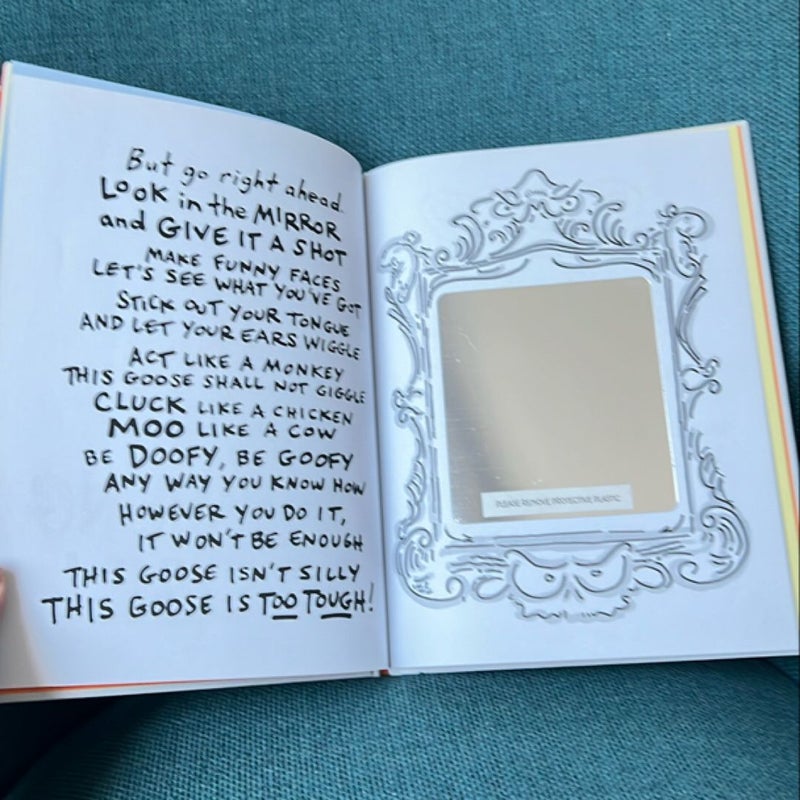 But go right ahead.
LOOK in the MIRROR
and GIVE IT A SHOT
MAKE FUNNY FACES
LET'S SEE WHAT YOU'VE GOT
STICK OUT YOUR TONGUE
AND LET YOUR EARS WIGGLE
ACT LIKE A MONKEY
THIS GOOSE SHALL NOT GIGGLE
CLUCK LIKE A CHICKEN
MOO LIKE A COW
BE DOOFY, BE GOOFY
ANY WAY YOU KNOW HOW
HOWEVER YOU DO IT,
IT WON'T BE ENOUGH
THIS GOOSE ISN'T SILLY
THIS GOOSE IS TOO TOUGH!
PLEASE REMOVE PROTECTIVE PLASTIC